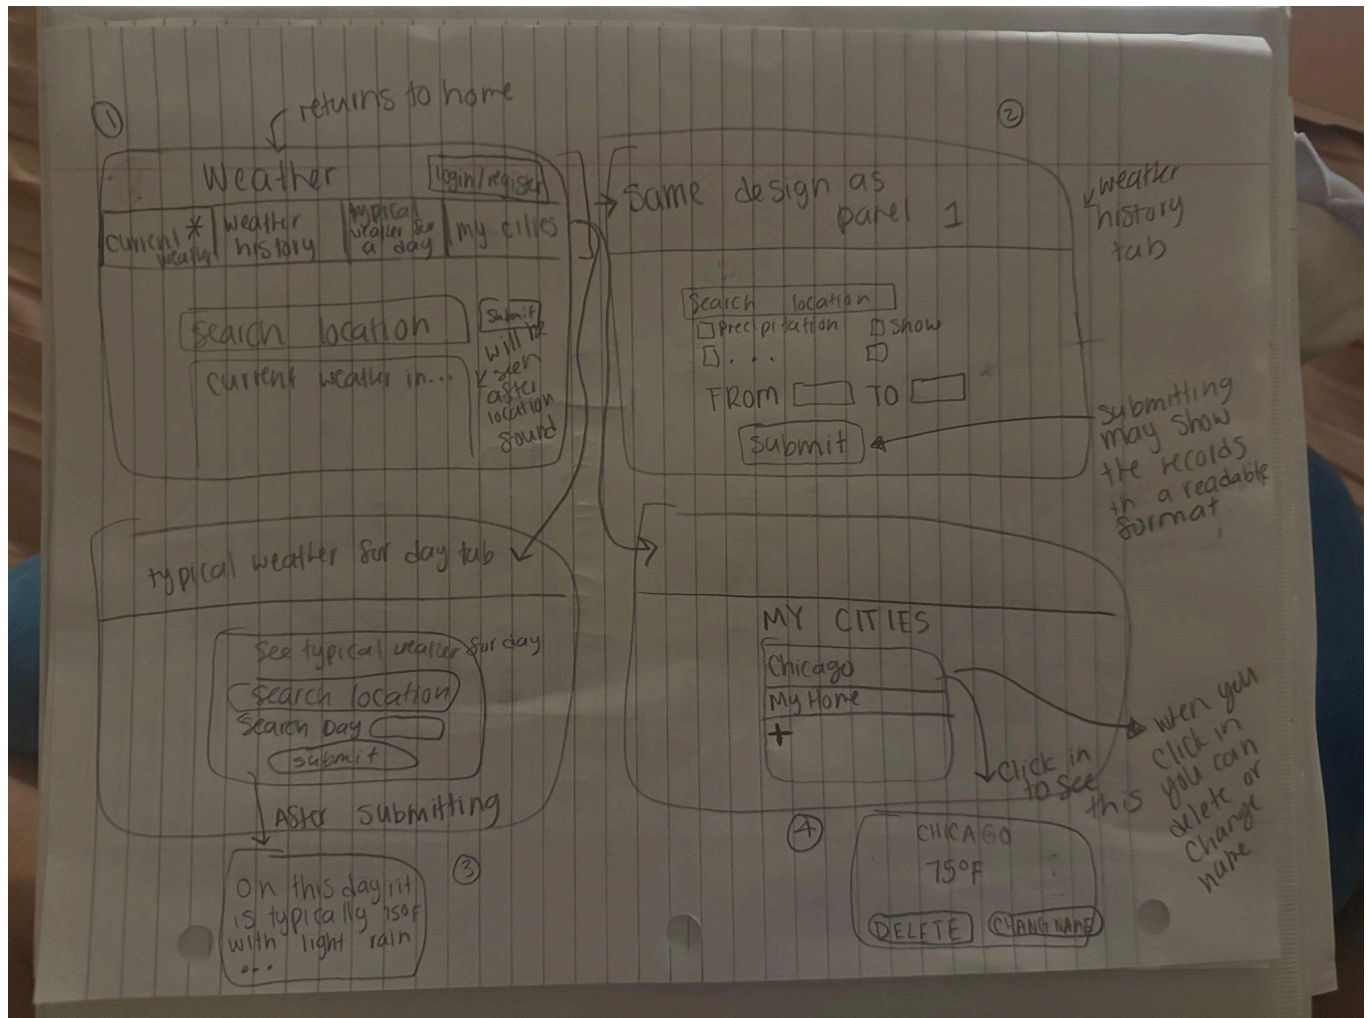 ①
returns to home
Weather
login/register
current *
weather
weather
history
typical
weather for
a day
my cities
search location
submit
current weather in...
will be
seen
after
location
found
②
same design as
panel 1
weather
history
tab
search location
precipitation
show
...
FROM
TO
submit
submitting
may show
the records
in a readable
format
typical weather for day tab
see typical weather for day
search location
search Day
submit
After submitting
③
on this day, it
is typically 75°F
with light rain
...
MY CITIES
Chicago
My Home
+
click in
to see
when you
click in
this you can
delete or
change
name
④
CHICAGO
75°F
DELETE
CHANG NAME